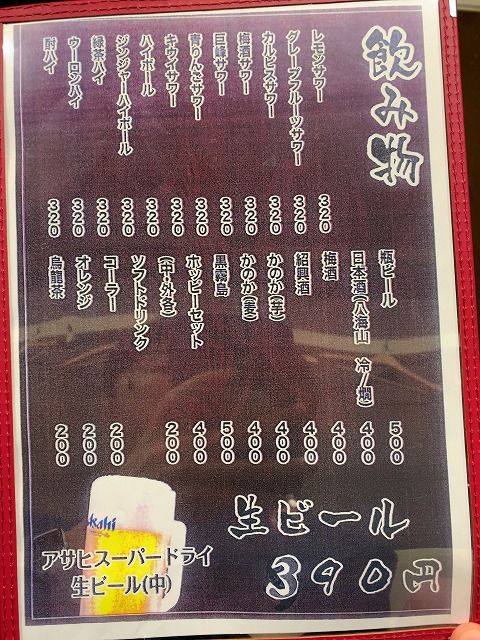 飲み物
レモンサワー 320
グレープフルーツサワー 320
カルピスサワー 320
梅酒サワー 320
巨峰サワー 320
青りんごサワー 320
キウイサワー 320
ハイボール 320
ジンジャーハイボール 320
緑茶ハイ 320
ウーロンハイ 320
酎ハイ 320
瓶ビール 500
日本酒(八海山 冷/燗) 400
梅酒 400
紹興酒 400
かのか(芋) 400
かのか(麦) 400
黒霧島 500
ホッピーセット 400
(中・外各) 200
ソフトドリンク
コーラー 200
オレンジ 200
烏龍茶 200
生ビール
390円
Asahi
アサヒスーパードライ
生ビール(中)